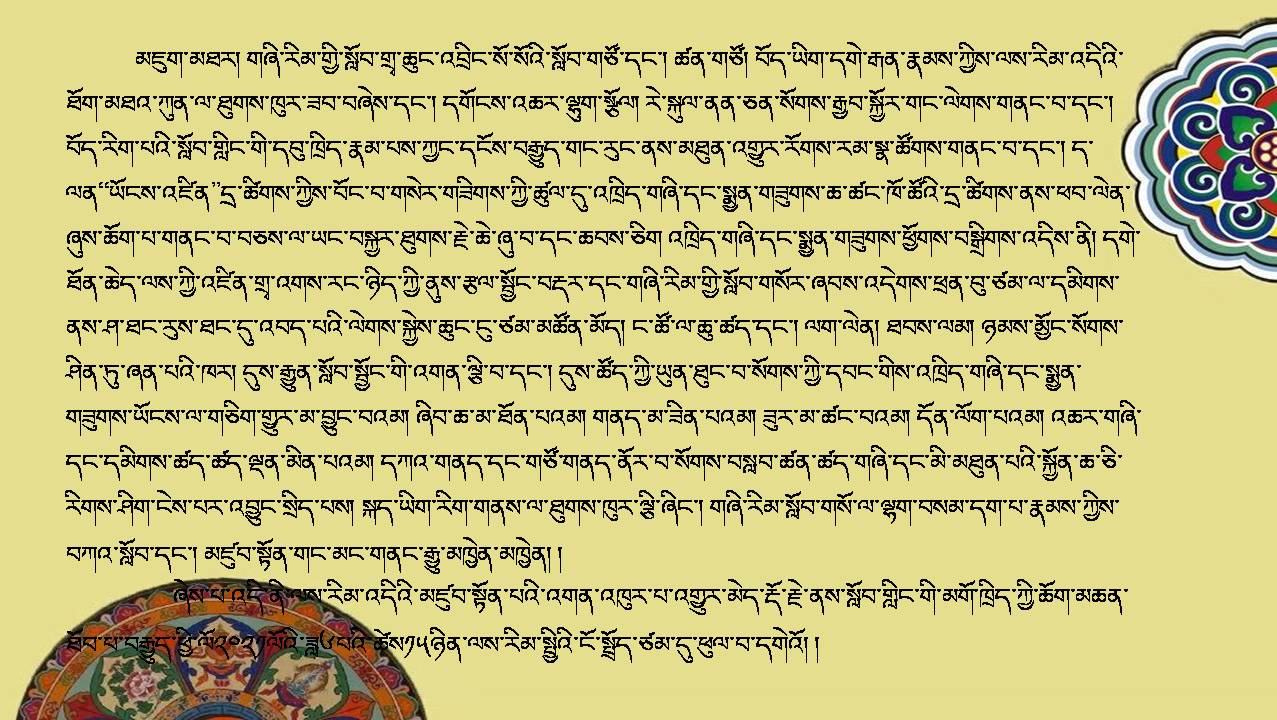 མཇུག་མཐར། གཞི་རིམ་གྱི་སློབ་གྲྭ་ཆུང་འབྲིང་སོ་སོའི་སློབ་གཙོ་དང་། ཚན་གཙོ། བོད་ཡིག་དགེ་རྒན་རྣམས་ཀྱིས་ལས་རིམ་འདིའི་
ཐོག་མཐའ་ཀུན་ལ་ཐུགས་ཁུར་ཟབ་བཞེས་དང་། དགོངས་འཆར་ལྷུག་སྩོལ། རེ་སྐུལ་ནན་ཅན་སོགས་རྒྱབ་སྐྱོར་གང་ལེགས་གནང་བ་དང་།
བོད་རིག་པའི་སློབ་གླིང་གི་དབུ་ཁྲིད་རྣམ་པས་ཀྱང་དངོས་བརྒྱུད་གང་རུང་ནས་མཐུན་འགྱུར་རོགས་རམ་སྣ་ཚོགས་གནང་བ་དང་། ད་
ལན་“ཡོངས་འཛིན་”དྲ་ཚིགས་ཀྱིས་བོང་བ་གསེར་གཟིགས་ཀྱི་ཚུལ་དུ་འཁྲིད་གཞི་དང་སྨྱན་གཟུགས་ཆ་ཚང་ཁོ་ཚོའི་དྲ་ཚིགས་ནས་ཕབ་ལེན་
ཞུས་ཆོག་པ་གནང་བ་བཅས་ལ་ཡང་བསྐྱར་ཐུགས་རྗེ་ཆེ་ཞུ་བ་དང་ཆབས་ཅིག འཁྲིད་གཞི་དང་སྨྱན་གཟུགས་ཕྱོགས་བསྒྲིགས་འདིས་ནི། དགེ་
ཐོན་ཆེད་ལས་ཀྱི་འཛིན་གྲྭ་འགས་རང་ཉིད་ཀྱི་ནུས་རྩལ་སྦྱོང་བརྡར་དང་གཞི་རིམ་གྱི་སློབ་གསོར་ཞབས་འདེགས་ཕྲན་བུ་ཙམ་ལ་དམིགས་
ནས་ཤ་ཐང་རུས་ཐང་དུ་འབད་པའི་ལེགས་སྐྱེས་ཆུང་ངུ་ཙམ་མཚོན་མོད། ང་ཚོ་ལ་ཆུ་ཚད་དང་། ལག་ལེན། ཐབས་ལམ། ཉམས་མྱོང་སོགས་
ཤིན་ཏུ་ཞན་པའི་ཁར། དུས་རྒྱུན་སློབ་སྦྱོང་གི་འགན་ལྕི་བ་དང་། དུས་ཚོད་ཀྱི་ཡུན་ཐུང་བ་སོགས་ཀྱི་དབང་གིས་འཁྲིད་གཞི་དང་སྨྱན་
གཟུགས་ཡོངས་ལ་གཅིག་གྱུར་མ་བྱུང་བའམ། ཞིབ་ཆ་མ་ཐོན་པའམ། གནད་མ་ཟིན་པའམ། ཟུར་མ་ཚང་བའམ། དོན་ལོག་པའམ། འཆར་གཞི་
དང་དམིགས་ཚད་ཚད་ལྡན་མིན་པའམ། དཀའ་གནད་དང་གཙོ་གནད་ནོར་བ་སོགས་བསླབ་ཚན་ཚད་གཞི་དང་མི་མཐུན་པའི་སྐྱོན་ཆ་ཅི་
རིགས་ཤིག་ངེས་པར་འབྱུང་སྲིད་པས། སྐད་ཡིག་རིག་གནས་ལ་ཐུགས་ཁུར་ལྕི་ཞིང་། གཞི་རིམ་སློབ་གསོ་ལ་ལྷག་བསམ་དག་པ་རྣམས་ཀྱིས་
བཀའ་སློབ་དང་། མཛུབ་སྟོན་གང་མང་གནང་རྒྱུ་མཁྱེན་མཁྱེན། །
ཞེས་པ་འདི་ནི་ལས་རིམ་འདིའི་མཛུབ་སྟོན་པའི་འགན་འཁུར་བ་འགྱུར་མེད་རྡོ་རྗེ་ནས་སློབ་གླིང་གི་མགོ་ཁྲིད་ཀྱི་ཆོག་མཆན་
ཐོབ་པ་བརྒྱུད་ཕྱི་ལོ༢༠༢༡ལོའི་ཟླ༦བའི་ཚེས༡༥ཉིན་ལས་རིམ་སྤྱིའི་ངོ་སྤྲོད་ཙམ་དུ་ཕུལ་བ་དགེའོ། །